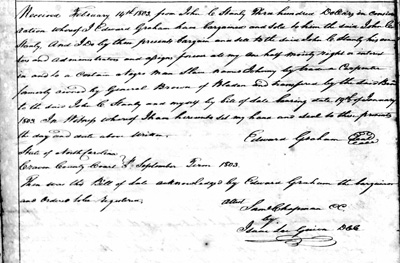 Received February 14th 1803 from John C. Stanly three hundred Dollars in consid
eration whereof I Edward Graham have bargained and sold to him the said John C.
Stanly. And I do by these presents bargain and sell to the said John C Stanly his execu
tors and administrators and assigns forever all my one half moiety right or interest
in and to a Certain Negro Man Slave named Johnny by trade a Carpenter
formerly owned by General Brown of Bladen and transferred by the said Brown
to the said John C. Stanly and myself by bill of sale bearing date 19th of January
1803. In Witness whereof I have hereunto set my hand and seal to these presents
the day and date above written.
Edward Graham Seal
State of North Carolina
Craven County Court September Term 1803.
Then was this Bill of Sale acknowledged by Edward Graham the bargainor
and Ordered to be registered.
Attest
Saml Chapman CC.
by